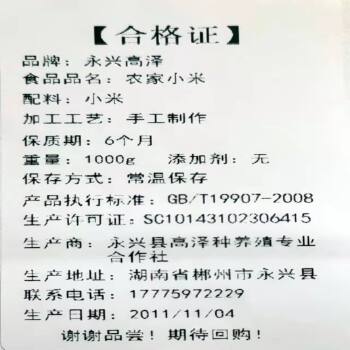 【合格证】
品牌：永兴高泽
食品品名：农家小米
配料：小米
加工工艺：手工制作
保质期：6个月
重量：1000g 添加剂：无
保存方式：常温保存
产品执行标准：GB/T19907-2008
生产许可证：SC10143102306415
生产商：永兴县高泽种养殖专业
合作社
生产地址：湖南省郴州市永兴县
联系电话：17775972229
生产日期：2011/11/04
谢谢品尝！期待回购！